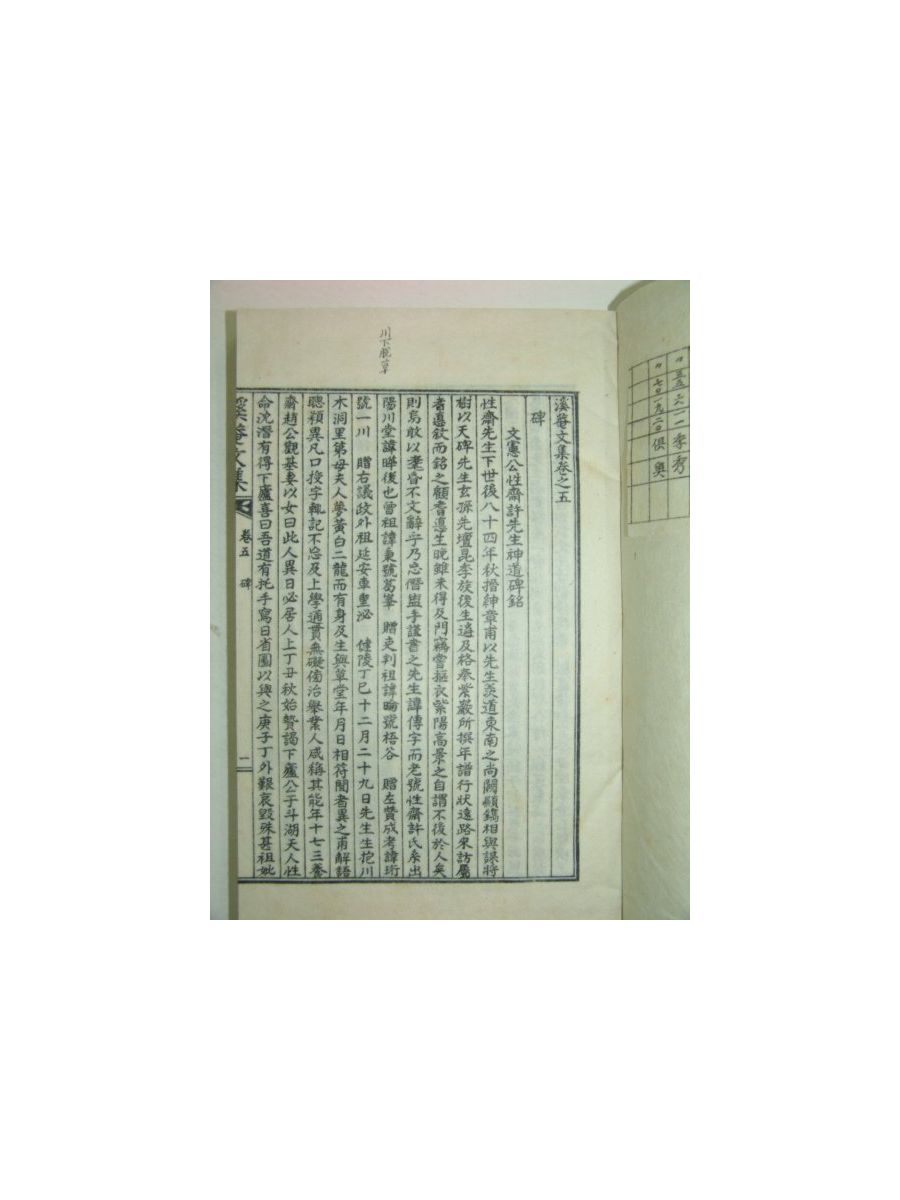 溪菴文集卷之五
碑
文憲公性齋許先生神道碑銘
性齋先生下世後八十四年秋搢紳章甫以先生羨道東南之尚闕顯鐫相與謀將
樹以天碑先生玄孫先壇昆季族後生遠及格奉紫巖所撰年譜行狀遠路來訪屬
者悳欽而銘之顧耆悳生晚雖未得及門竊嘗摳衣紫陽高景之自謂不後於人矣
則烏敢以耄昏不文辭乎乃忘僭盥手謹書之先生諱傳字而老號性齋許氏系出
陽川堂諱曄後也曾祖諱秉號葛峯 贈吏判祖諱晦號梧谷 贈左贊成考諱珩
號一川 贈右議政外祖延安車重泌 健陵丁巳十二月二十九日先生生抱川
木洞里第母夫人夢黃白二龍而有身及生與草堂年月日相符聞者異之甫解語
聰穎異凡口授字輒記不忘及上學通貫無礙傍治舉業人咸稱其能年十七三養
齋趙公觀基妻以女曰此人異日必居人上丁丑秋始贄謁下廬公于斗湖天人性
命沈潛有得下廬喜曰吾道有托手寫日省圖以與之庚子丁外艱哀毀殊甚祖妣
溪菴文集
卷五
碑
一